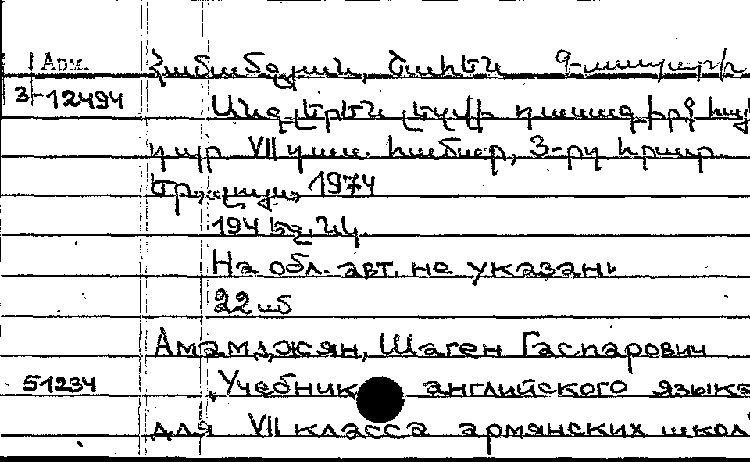 Арм. Համամջյան, Շահեն Գասպարի
3-12494 Անգլերեն լեզվի դասագիրք հայ
դպր. VII դաս. համար, 3-րդ հրատ.
Երևան, 1974
194 էջ, նկ.
На обл. авт. не указаны
22 սմ
Амамджян, Шаген Гаспарович
51234 Учебник английского языка
для VII класса армянских школ